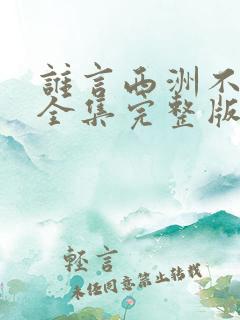 誰言西洲不
全集完整版
輕言
未任同意禁止轉載